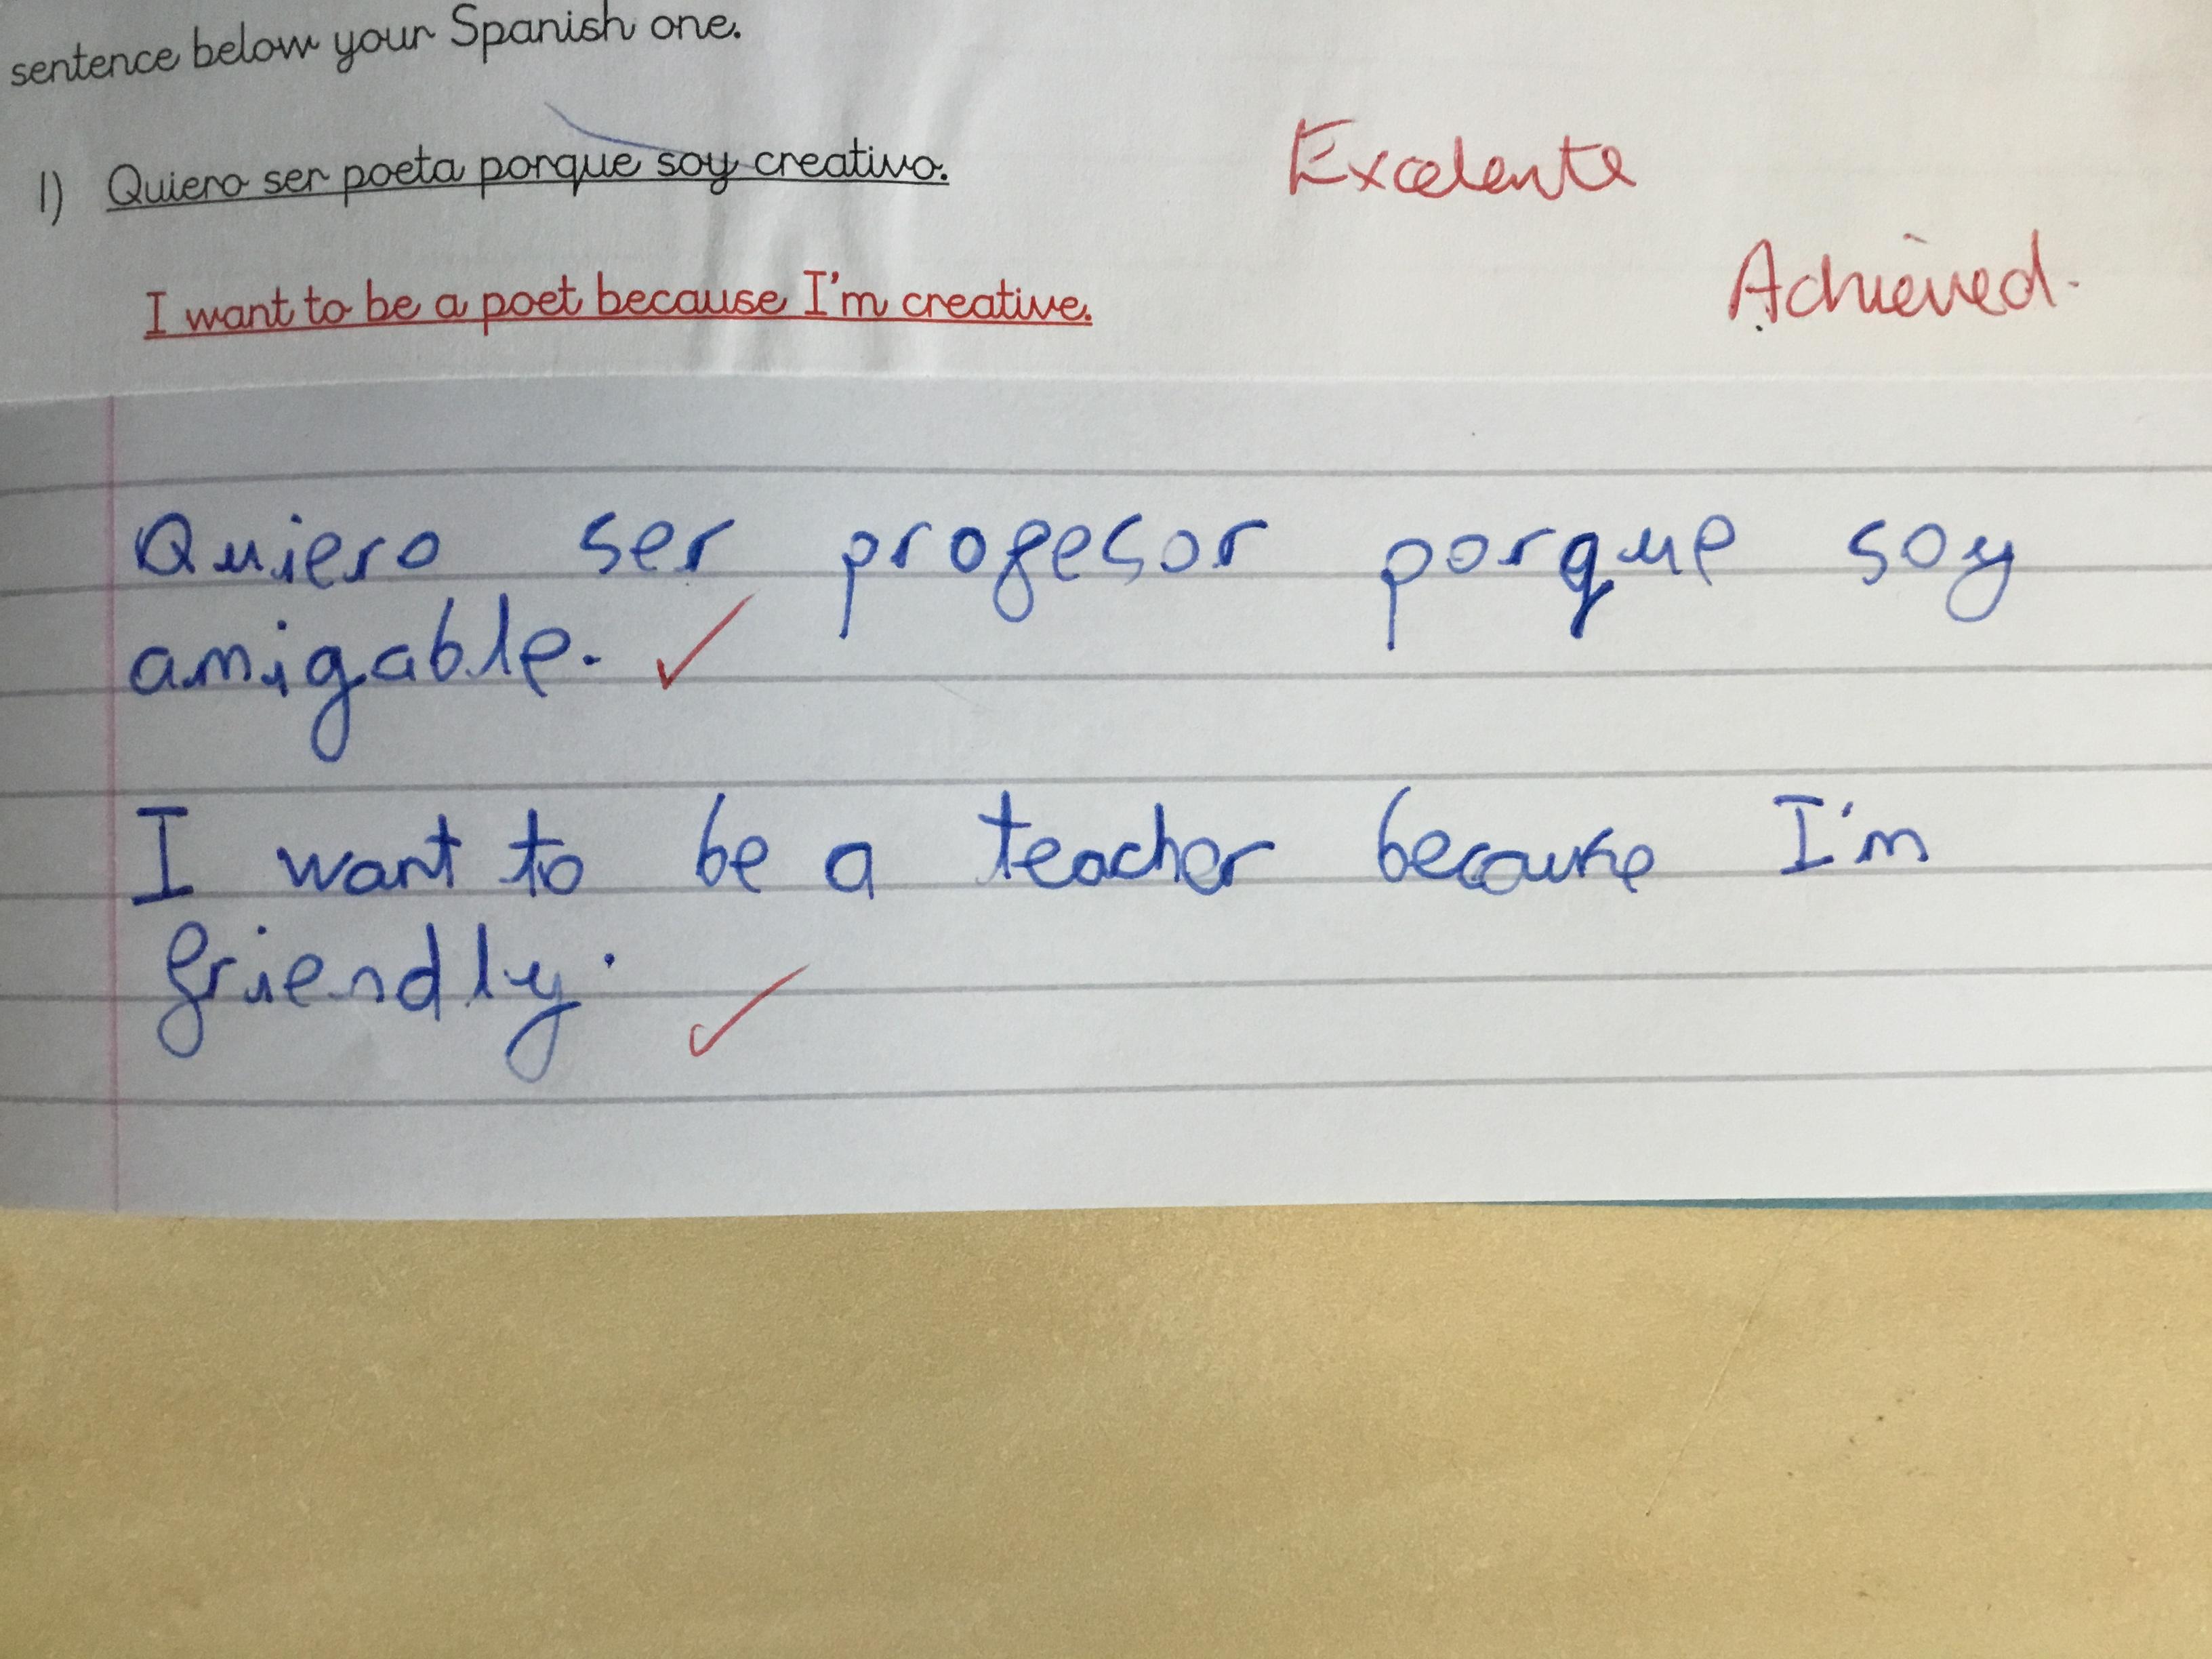 sentence below your Spanish one.
1) Quiero ser poeta porque soy creativo.
Excelente
I want to be a poet because I'm creative.
Achieved.
Quiero ser profesor porque soy
amigable.
I want to be a teacher because I'm
friendly.